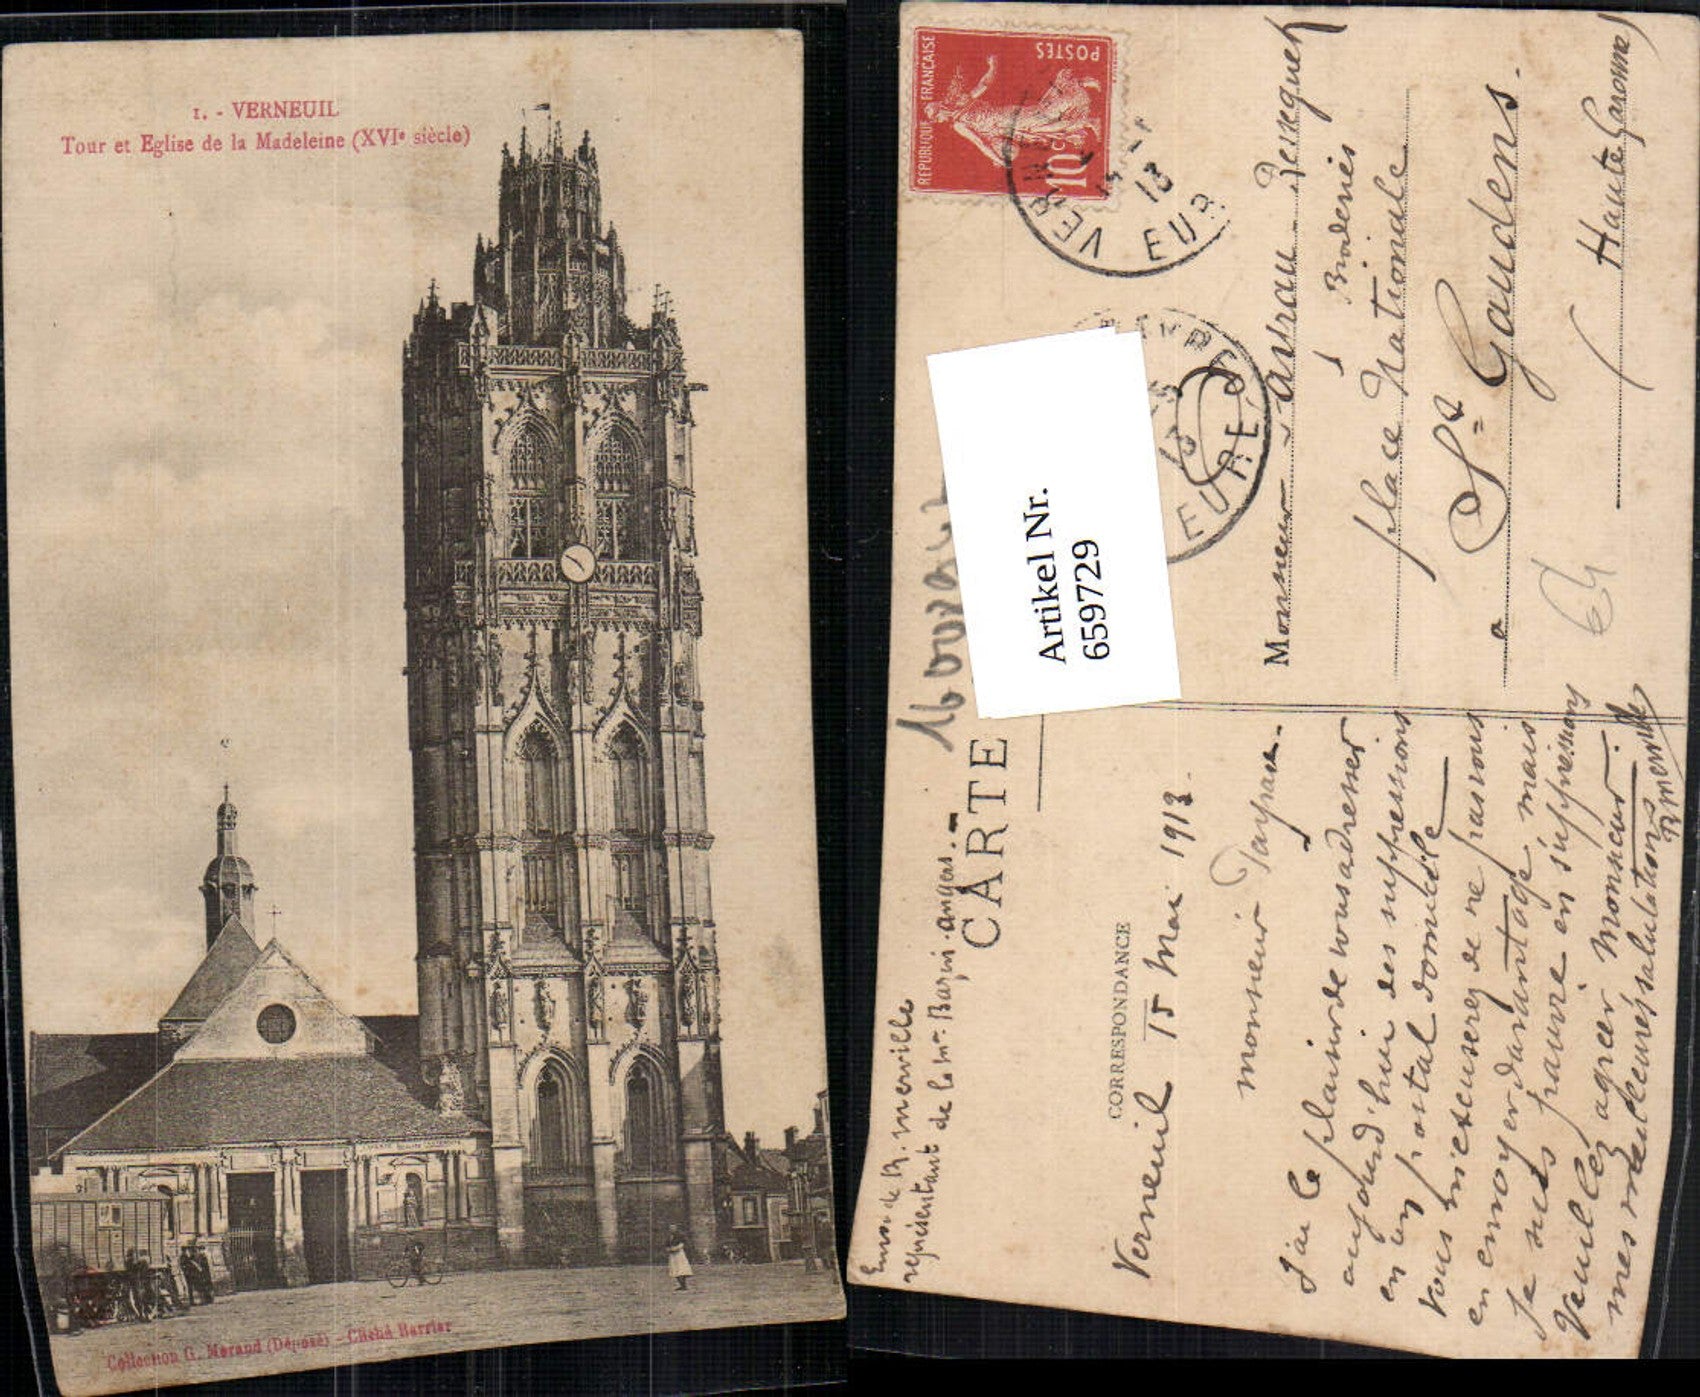 1. - VERNEUIL
Tour et Eglise de la Madeleine (XVIe siècle)
Collection G. Morand (Déposé) - Cliché Barrier
REPUBLIQUE FRANÇAISE
POSTES
10c
13
EUR
EURE
Artikel Nr.
659729
CARTE
CORRESPONDANCE
Envoi de R. Merville
représentant de la Mon Bazin. angers.
Verneuil 15 Mai 1913.
Monsieur
J'ai le plaisir de vous adresser
aujourd'hui des suppressions
en un postal domicile
Vous m'excuserez de ne pas vous
en envoyer davantage mais
Je suis pauvre en suppressions
Veuillez agréer Monsieur
mes meilleures salutations
R Merville
Monsieur
Broderies
place Nationale
à St Gaudens.
(Haute Garonne)